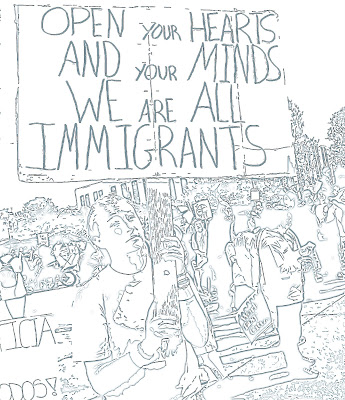 OPEN YOUR HEARTS
AND YOUR MINDS
WE ARE ALL
IMMIGRANTS
ICIA
ODOS!